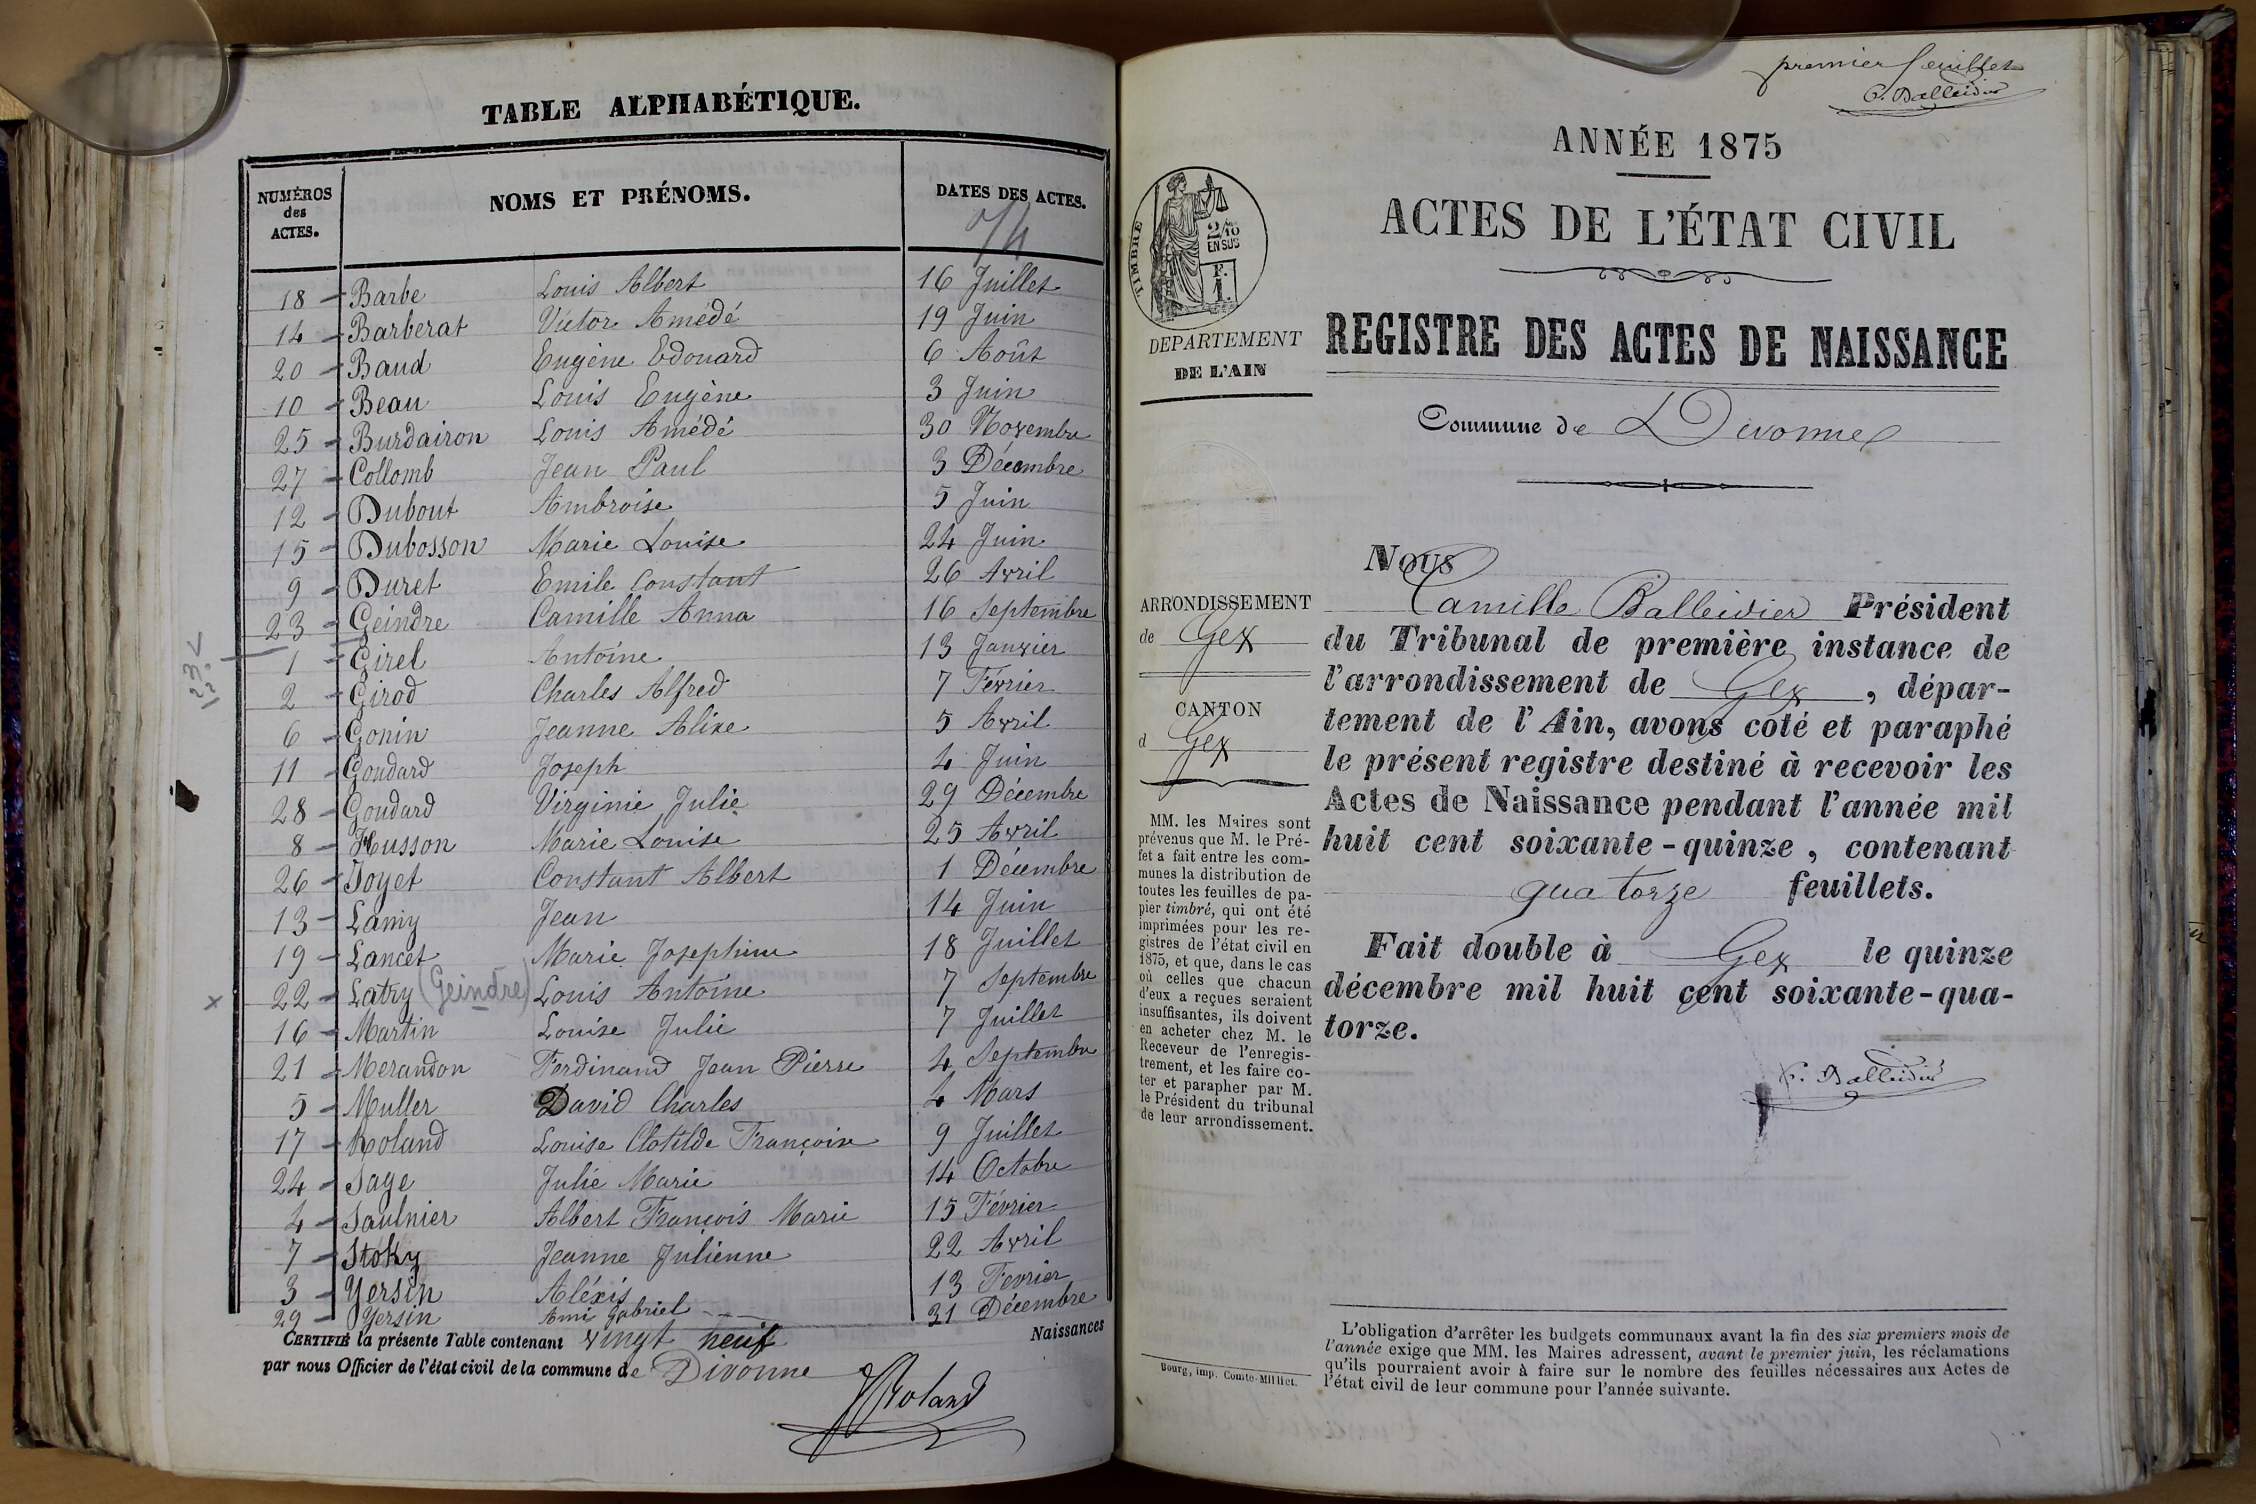 TABLE ALPHABÉTIQUE.
NUMÉROS des ACTES. NOMS ET PRÉNOMS. DATES DES ACTES.
74
18 - Barbe Louis Albert 16 Juillet
14 - Barberat Victor Amédé 19 Juin
20 - Baud Eugène Edouard 6 Août
10 - Beau Louis Eugène 3 Juin
25 - Burdairon Louis Amédé 30 Novembre
27 - Collomb Jean Paul 3 Décembre
12 - Dubout Ambroise 5 Juin
15 - Dubosson Marie Louise 24 Juin
9 - Duret Emile Constant 26 Avril
23 - Geindre Camille Anna 16 Septembre
1 - Girel Antoine 13 Janvier
2 - Girod Charles Alfred 7 Février
6 - Gonin Jeanne Alixe 5 Avril
11 - Goudard Joseph 4 Juin
28 - Goudard Virginie Julie 29 Décembre
8 - Husson Marie Louise 25 Avril
26 - Joyet Constant Albert 1 Décembre
13 - Lamy Jean 14 Juin
19 - Lancet Marie Josephine 18 Juillet
x 22 - Latry (Geindre) Louis Antoine 7 Septembre
16 - Martin Louise Julie 7 Juillet
21 - Merandon Ferdinand Jean Pierre 4 Septembre
5 - Muller David Charles 4 Mars
17 - Roland Louise Clotilde Françoise 9 Juillet
24 - Sage Julie Marie 14 Octobre
4 - Saulnier Albert François Marie 15 Février
7 - Stoky Jeanne Julienne 22 Avril
3 - Yersin Aléxis 13 Fevrier
29 - Yersin Ami Gabriel 31 Décembre
CERTIFIÉ la présente Table contenant vingt neuf Naissances
par nous Officier de l'état civil de la commune de Divonne
Roland
premier feuillet
C. Balleidier
ANNÉE 1875
ACTES DE L'ÉTAT CIVIL
TIMBRE
2/10
EN SUS
F.
1.
DEPARTEMENT
DE L'AIN
REGISTRE DES ACTES DE NAISSANCE
Commune de Divonne
ARRONDISSEMENT
de Gex
CANTON
d Gex
MM. les Maires sont
prévenus que M. le Pré-
fet a fait entre les com-
munes la distribution de
toutes les feuilles de pa-
pier timbré, qui ont été
imprimées pour les re-
gistres de l'état civil en
1875, et que, dans le cas
où celles que chacun
d'eux a reçues seraient
insuffisantes, ils doivent
en acheter chez M. le
Receveur de l'enregis-
trement, et les faire co-
ter et parapher par M.
le Président du tribunal
de leur arrondissement.
Bourg, imp. Comte-Milliet.
Nous
Camille Balleidier Président
du Tribunal de première instance de
l'arrondissement de Gex, dépar-
tement de l'Ain, avons coté et paraphé
le présent registre destiné à recevoir les
Actes de Naissance pendant l'année mil
huit cent soixante-quinze, contenant
quatorze feuillets.
Fait double à Gex le quinze
décembre mil huit cent soixante-qua-
torze.
C. Balleidier
L'obligation d'arrêter les budgets communaux avant la fin des six premiers mois de
l'année exige que MM. les Maires adressent, avant le premier juin, les réclamations
qu'ils pourraient avoir à faire sur le nombre des feuilles nécessaires aux Actes de
l'état civil de leur commune pour l'année suivante.